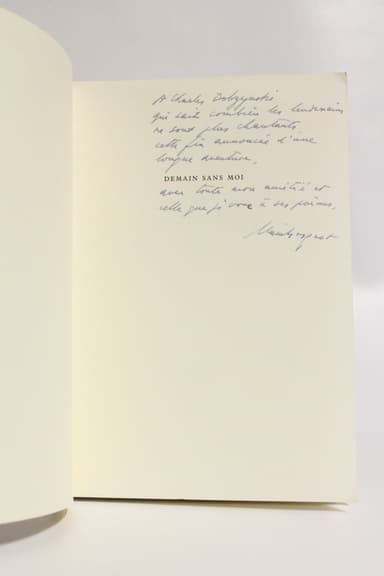 A Charles Dobzynski
qui sait combien les lendemains
ne sont plus chantants,
cette fin annoncée d'une
longue aventure,
DEMAIN SANS MOI
avec toute mon amitié et
celle que je voue à ses poèmes,